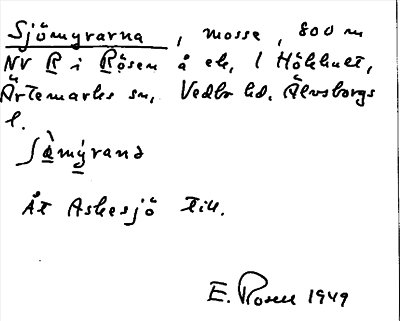 Sjömyrarna, mosse, 800 m
NV R i Rösen å ek, l Hökhult,
Ärtemarks sn, Vedbo hd. Älvsborgs
l.
Sjö̀mýrana
Åt Askesjö till.
E. Rosell 1949